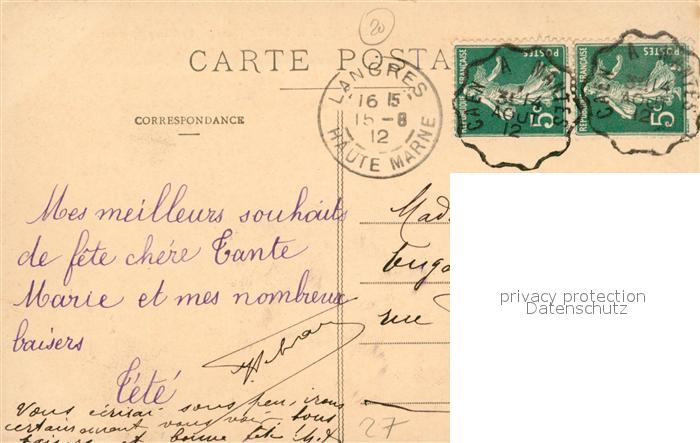 20
CARTE POSTA
LANGRES
16 15
15 - 8
12
HAUTE MARNE
CORRESPONDANCE
RÉPUBLIQUE FRANÇAISE
POSTES
5c
CAEN A
AOU
12
RÉPUBLIQUE FRANÇAISE
POSTES
5c
CAEN A
AOU
12
Mes meilleurs souhaits
de fête chère Tante
Marie et mes nombreux
baisers
Tété
Mad
rue
privacy protection
Datenschutz
Vous écrirai sous peu, irons
certainement vous voir tous
baisers et bonne fête
27